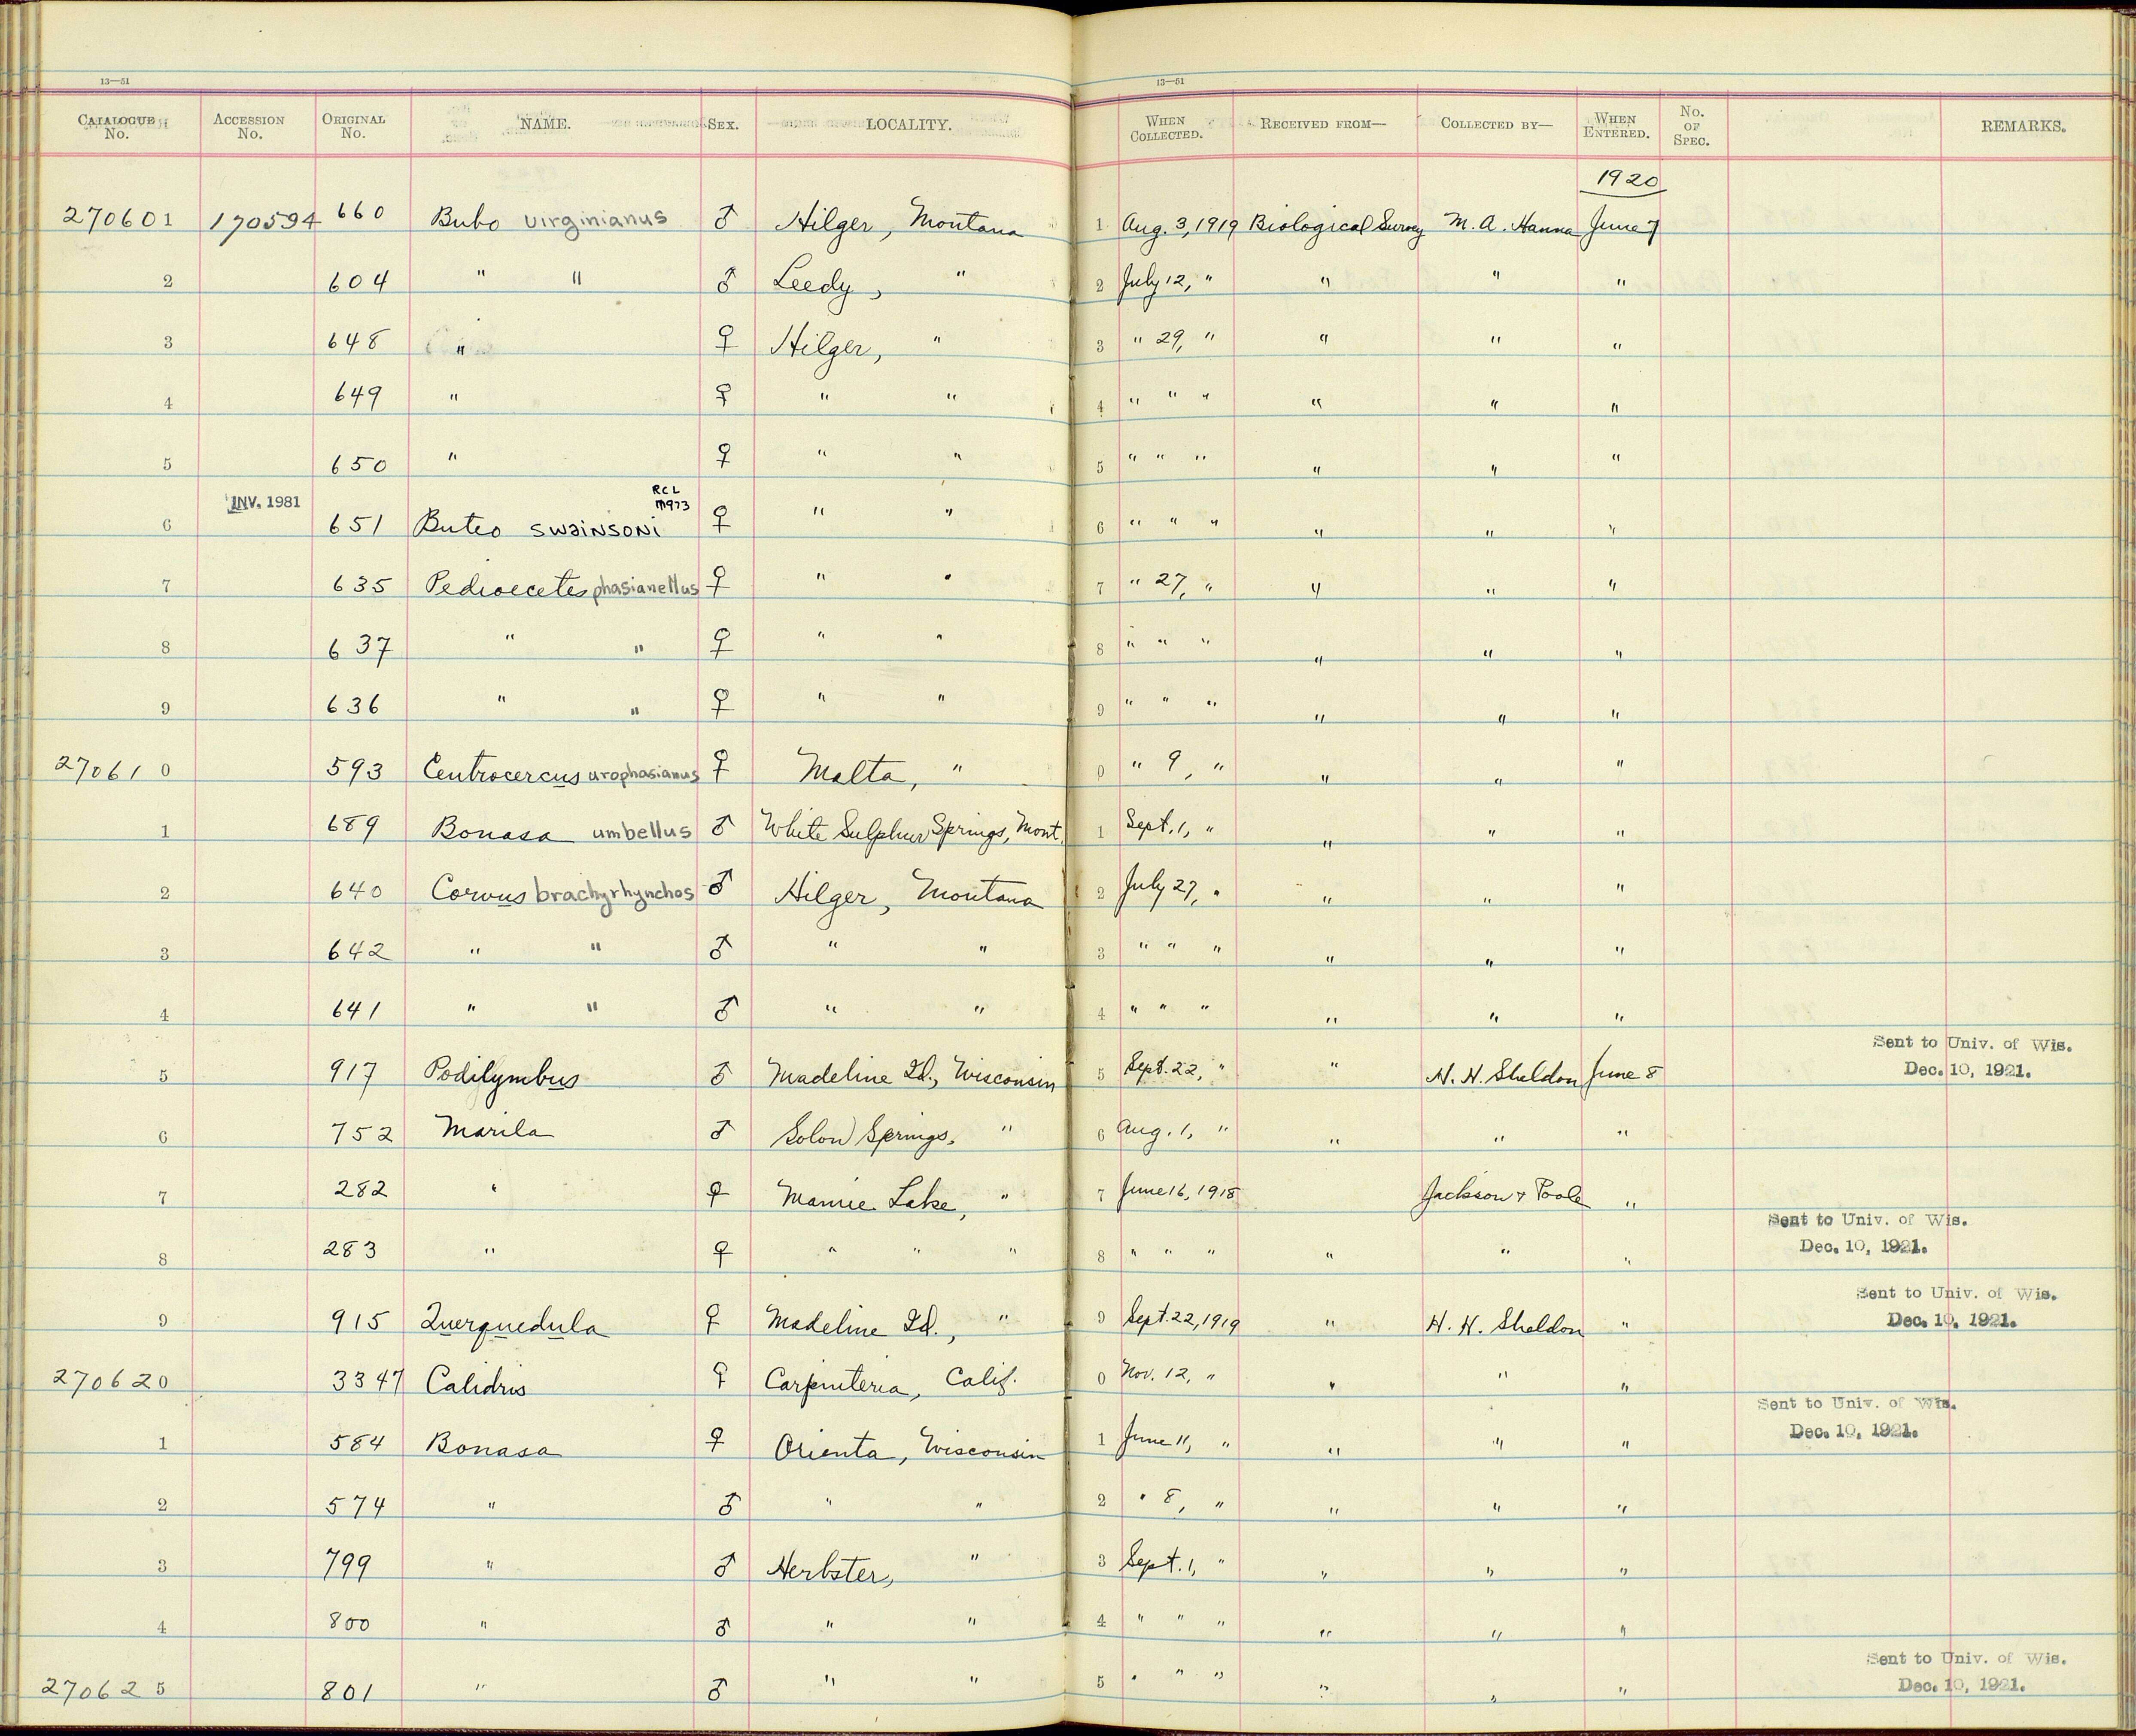 13—51 13—51
CATALOGUE No. ACCESSION No. ORIGINAL No. NAME. SEX. LOCALITY. WHEN COLLECTED. RECEIVED FROM— COLLECTED BY— WHEN ENTERED. No. OF SPEC. REMARKS.
1920
270601 170594 660 Bubo virginianus ♂ Hilger, Montana 1 Aug. 3, 1919 Biological Survey M. A. Hanna June 7
2 604 " " ♂ Leedy, " 2 July 12, " " " "
3 648 " ♀ Hilger, " 3 " 29, " " " "
4 649 " ♀ " " 4 " " " " " "
5 650 " ♀ " " 5 " " " " " "
INV. 1981 RCL
M973
6 651 Buteo swainsoni ♀ " " 6 " " " " " "
7 635 Pedioecetes phasianellus ♀ " " 7 " 27, " " " "
8 637 " " ♀ " " 8 " " " " " "
9 636 " " ♀ " " 9 " " " " " "
270610 593 Centrocercus urophasianus ♀ Malta, " 0 " 9, " " " "
1 689 Bonasa umbellus ♂ White Sulphur Springs, Mont. 1 Sept. 1, " " " "
2 640 Corvus brachyrhynchos ♂ Hilger, Montana 2 July 27, " " " "
3 642 " " ♂ " " 3 " " " " " "
4 641 " " ♂ " " 4 " " " " " "
5 917 Podilymbus ♂ Madeline Id., Wisconsin 5 Sept. 22, " " H. H. Sheldon June 8 Sent to Univ. of Wis.
Dec. 10, 1921.
6 752 Marila ♂ Solon Springs, " 6 Aug. 1, " " " "
7 282 " ♀ Mamie Lake, " 7 June 16, 1918 Jackson & Poole "
8 283 " ♀ " " " 8 " " " " " " Sent to Univ. of Wis.
Dec. 10, 1921.
9 915 Querquedula ♀ Madeline Id., " 9 Sept. 22, 1919 " H. H. Sheldon " Sent to Univ. of Wis.
Dec. 10, 1921.
270620 3347 Calidris ♀ Carpinteria, Calif. 0 Nov. 12, " " " "
1 584 Bonasa ♀ Orienta, Wisconsin 1 June 11, " " " " Sent to Univ. of Wis.
Dec. 10, 1921.
2 574 " ♂ " " 2 " 8, " " " "
3 799 " ♂ Herbster, " 3 Sept. 1, " " " "
4 800 " ♂ " " 4 " " " " " "
270625 801 " ♂ " " 5 " " " " " " Sent to Univ. of Wis.
Dec. 10, 1921.